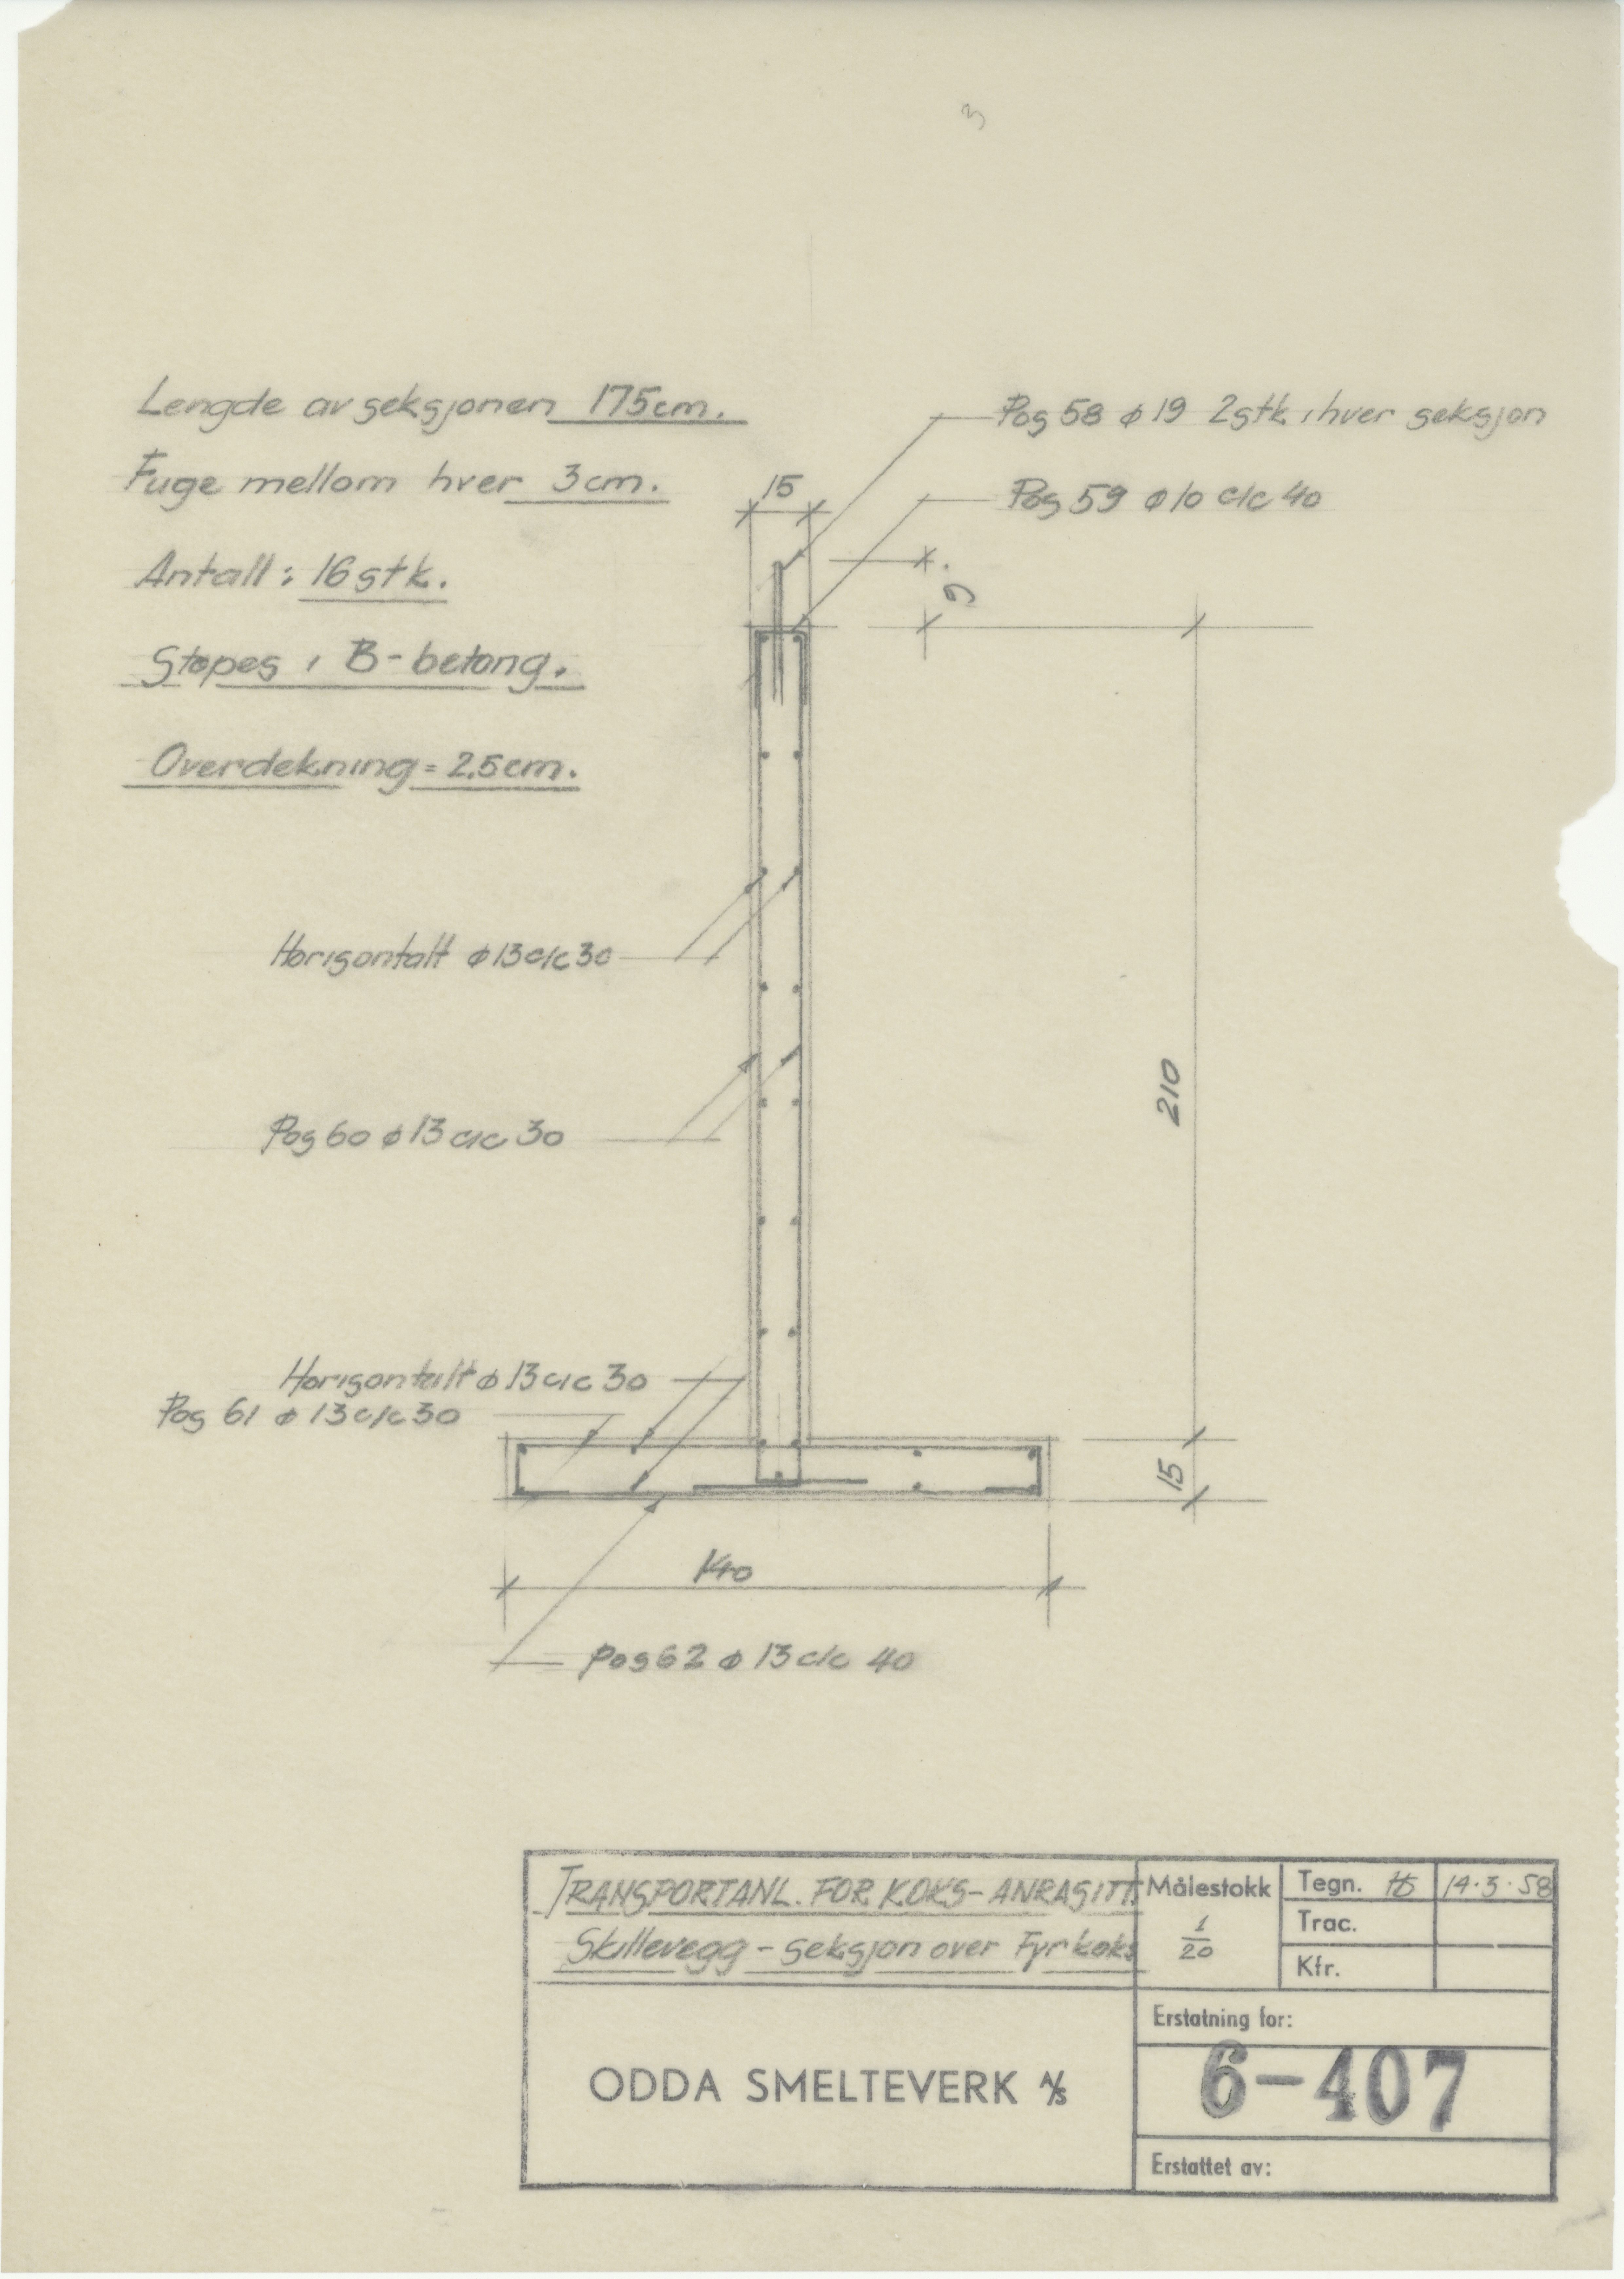 3
Lengde av seksjonen 175cm.
Fuge mellom hver 3cm.
Antall: 16 stk.
Støpes i B-betong.
Overdekning = 2,5cm.
Pos 58 ϕ 19 2stk i hver seksjon
Pos 59 ϕ 10 c/c 40
15
9
Horisontalt ϕ 13 c/c 30
210
Pos 60 ϕ 13 c/c 30
Horisontalt ϕ 13 c/c 30
Pos 61 ϕ 13 c/c 30
15
140
Pos 62 ϕ 13 c/c 40
TRANSPORTANL. FOR KOKS-ANRASITT.
Skillevegg - seksjon over Fyrkoks
Målestokk
1/20
Tegn. 14·3·58
Trac.
Kfr.
Erstatning for:
ODDA SMELTEVERK A/S
6-407
Erstattet av: